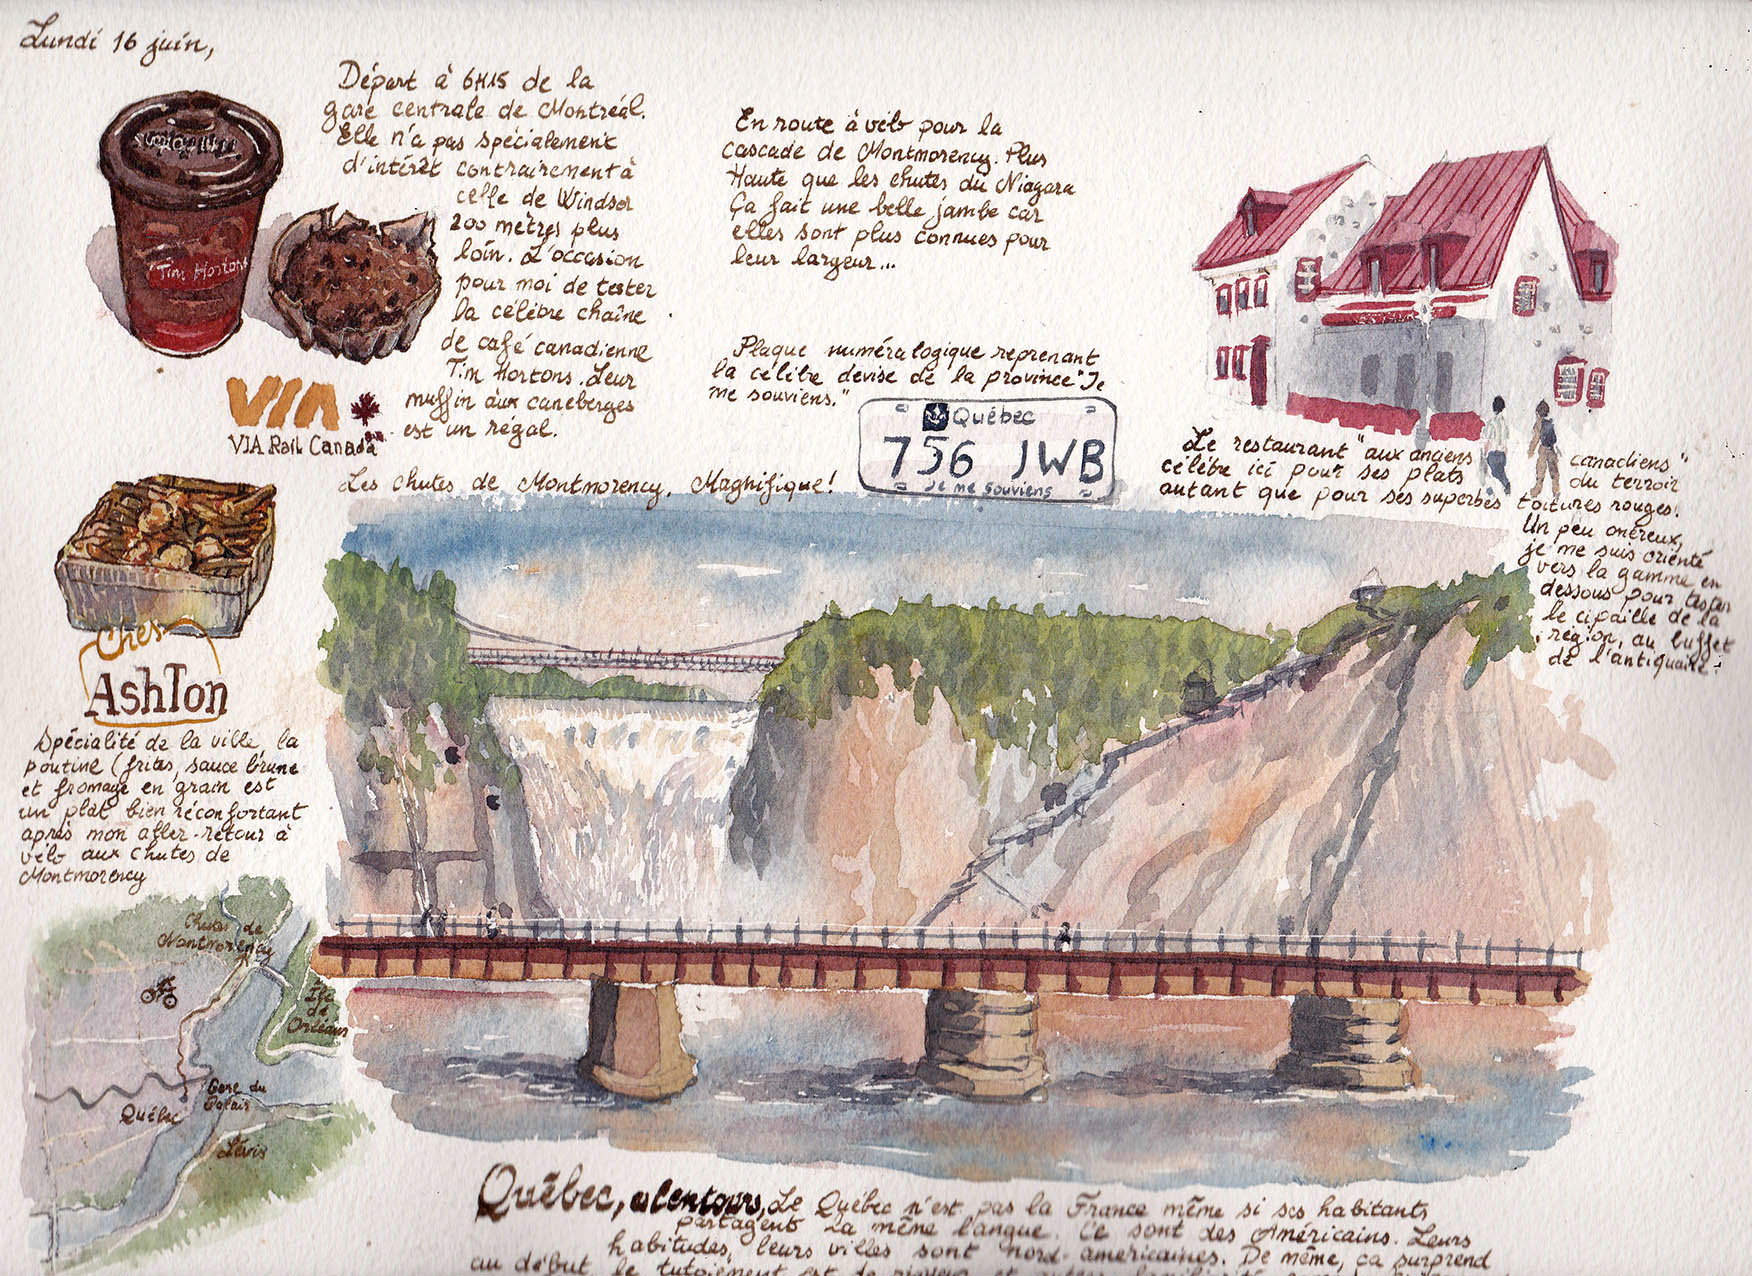 Lundi 16 juin,
Départ à 6H15 de la
gare centrale de Montréal.
Elle n'a pas spécialement
d'intérêt contrairement à
celle de Windsor
200 mètres plus
loin. L'occasion
pour moi de tester
la célèbre chaîne
de café canadienne
Tim Hortons. Leur
muffin aux caneberges
est un régal.
Tim Hortons
VIA
VIA Rail Canada
En route à vélo pour la
cascade de Montmorency. Plus
Haute que les chutes du Niagara
Ça fait une belle jambe car
elles sont plus connues pour
leur largeur...
Plaque numéralogique reprenant
la célèbre devise de la province "Je
me souviens."
Québec
756 JWB
Je me souviens
Le restaurant "aux anciens canadiens"
célèbre ici pour ses plats du terroir
autant que pour ses superbes toitures rouges.
Un peu onéreux,
je me suis orienté
vers la gamme en
dessous pour tester
le cipaille de la
région, au buffet
de l'antiquaire.
Les chutes de Montmorency. Magnifique!
Chez
AshTon
Spécialité de la ville, la
poutine (frites, sauce brune
et fromage en grain est
un plat bien réconfortant
après mon aller-retour à
vélo aux chutes de
Montmorency
Chutes de
Montmorency
Île
de
Orléans
Gare du
Palais
Québec
Lévis
Québec, alentours, Le Québec n'est pas la France même si ses habitants
partagent la même langue. Ce sont des Américains. Leurs
habitudes, leurs villes sont nord-américaines. De même, ça surprend
au début, le tutoiement est de rigueur et